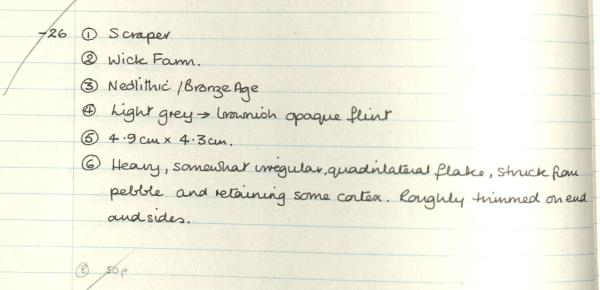 -26 ① Scraper
② Wick Farm.
③ Neolithic / Bronze Age
④ Light grey → brownish opaque flint
⑤ 4.9cm x 4.3cm.
⑥ Heavy, somewhat irregular, quadrilateral flake, struck from
pebble and retaining some cortex. Roughly trimmed on end
and sides.
⑧ 50p